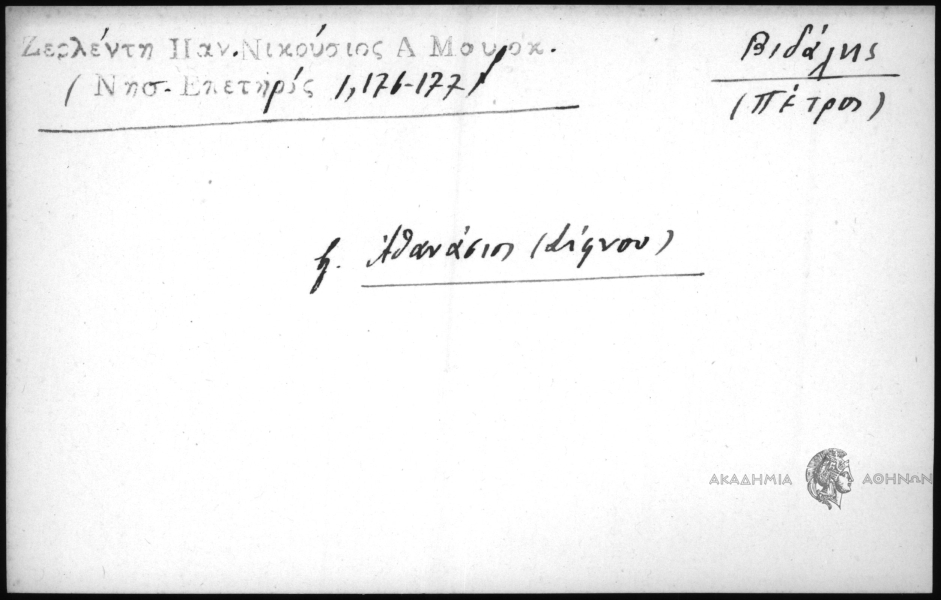 Ζερλέντη Παν. Νικούσιος Α Μαυροκ.
(Νησ. Επετηρίς 1, 176-177)
Βιδάλης
(Πέτρος)
βλ. Ἀθανάσιος (Σίφνου)
ΑΚΑΔΗΜΙΑ ΑΘΗΝΩΝ